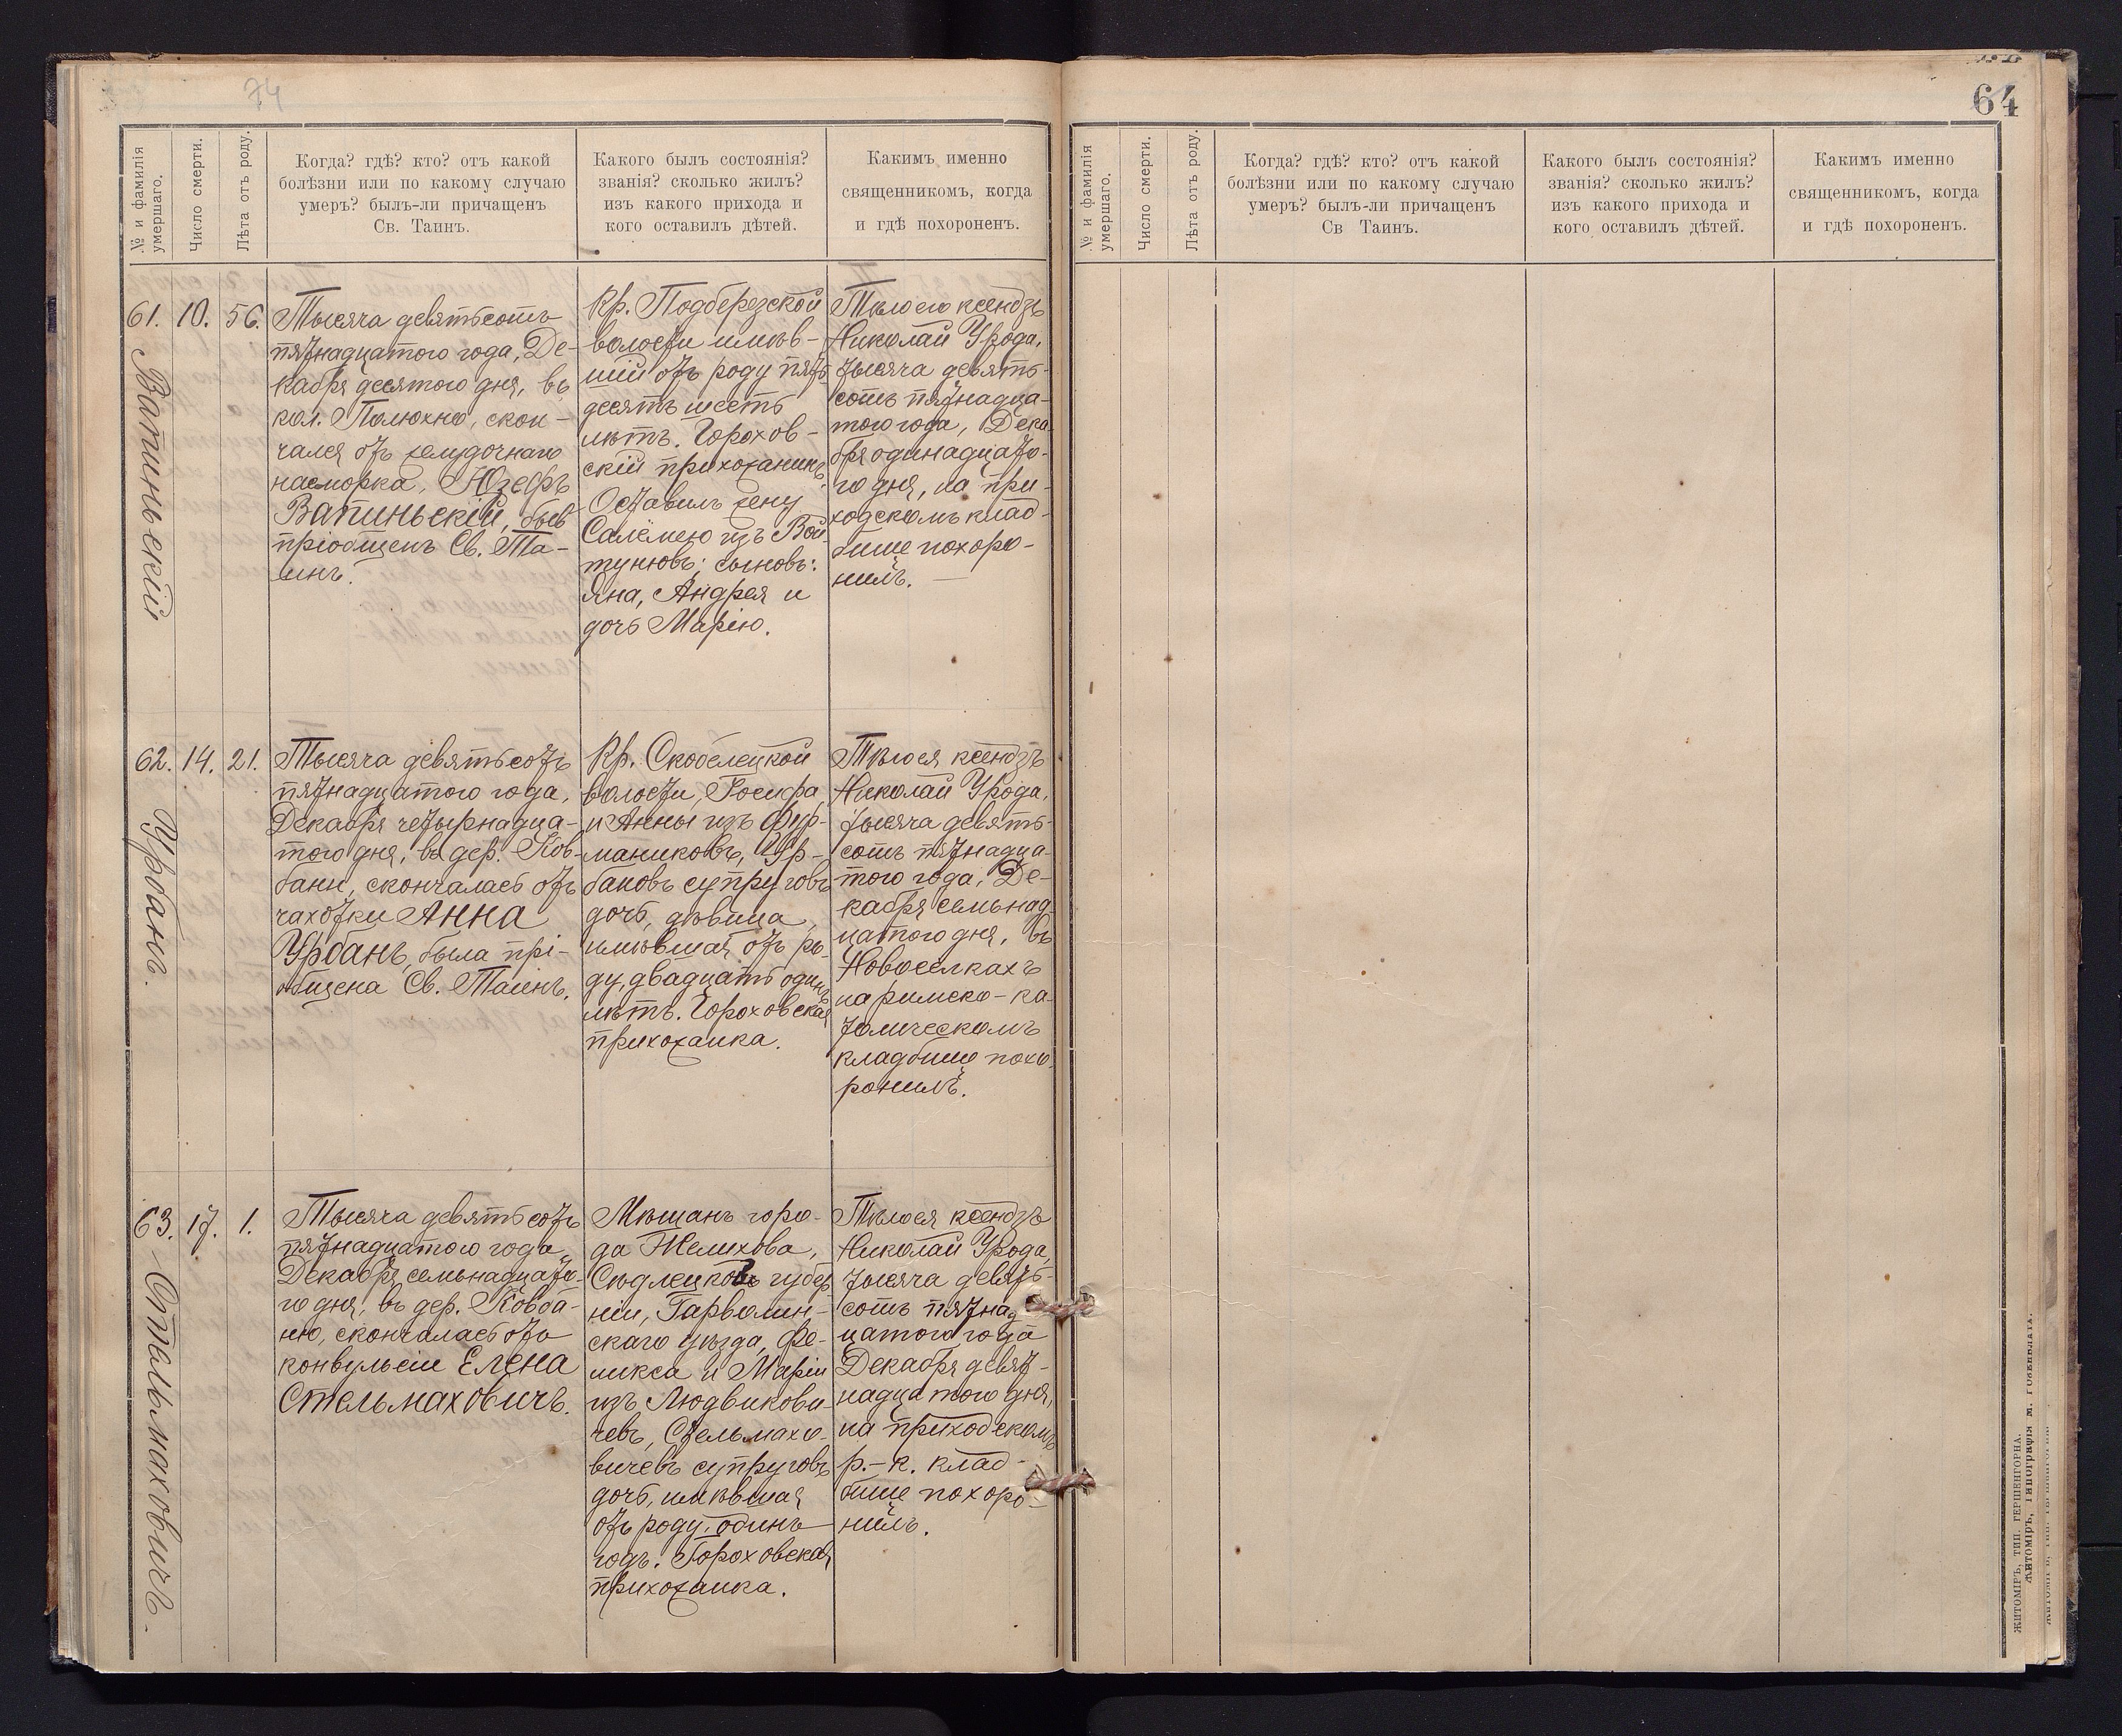 74
№ и фамилія
умершаго.
Число смерти.
Лѣта отъ роду.
Когда? гдѣ? кто? отъ какой
болѣзни или по какому случаю
умеръ? былъ-ли причащенъ
Св. Таинъ.
Какого былъ состоянія?
званія? сколько жилъ?
изъ какого прихода и
кого оставилъ дѣтей.
Какимъ именно
священникомъ, когда
и гдѣ похороненъ.
61.
Вапиньскій
10.
56.
Тысяча девятьсотъ
пятнадцатого года, Де-
кабря десятого дня, въ
кол. Полюхно, скон-
чался отъ желудочнаго
насморка, Юзефъ
Вапиньскій, былъ
пріобщенъ Св. Та-
инъ.
Кр. Подберезской
волости имѣв-
шій отъ роду пять
десять шесть
лѣтъ. Горохов-
скій прихожанинъ.
Оставилъ жену
Саломею изъ Вой-
туновъ; сыновъ:
Яна, Андрея и
дочь Марію.
Тѣло его ксендзъ
Николай Урода,
тысяча девять-
сотъ пятнадца-
того года, Дека-
бря одинадцато-
го дня, на при-
ходскомъ клад-
бище похоро-
нилъ.
62.
Урбанъ.
14.
21.
Тысяча девятьсотъ
пятнадцатого года,
Декабря четырнадца-
того дня, въ дер. Ков-
бани, скончалась отъ
чахотки Анна
Урбанъ, была прі-
общена Св. Таинъ.
Кр. Скобелецкой
волости, Іосифа
и Анны изъ Фур-
маниковъ, Ур-
бановъ супруговъ
дочь, дѣвица,
имѣвшая отъ ро-
ду, двадцать одинъ
лѣтъ. Гороховская
прихожанка.
Тѣло ея ксендзъ
Николай Урода,
тысяча девять-
сотъ пятнадца-
того года, Де-
кабря семьнад-
цатого дня, въ
Новоселкахъ
на римско-ка-
толическомъ
кладбище похо-
ронилъ.
63.
Стальмаховичъ.
17.
1.
Тысяча девятьсотъ
пятнадцатого года,
Декабря семьнадцато-
го дня, въ дер. Ковба-
ню, скончалась отъ
конвульсіи Елена
Стельмаховичъ.
Мѣщанъ горо-
да Желихова,
Сѣдлецкой губер-
ніи, Гарволин-
скаго уѣзда, Фе-
ликса и Маріи
изъ Людвикови-
чевъ, Стельмахо-
вичевъ супруговъ
дочь, имѣвшая
отъ роду, одинъ
годъ. Гороховская
прихожанка.
Тѣло ея ксендзъ
Николай Урода,
тысяча девять-
сотъ пятнад-
цатого года
Декабря девят-
надцатого дня,
на приходскомъ
р.-к. клад-
бище похоро-
нилъ.
64
№ и фамилія
умершаго.
Число смерти.
Лѣта отъ роду.
Когда? гдѣ? кто? отъ какой
болѣзни или по какому случаю
умеръ? былъ-ли причащенъ
Св Таинъ.
Какого былъ состоянія?
званія? сколько жилъ?
изъ какого прихода и
кого оставилъ дѣтей.
Какимъ именно
священникомъ, когда
и гдѣ похороненъ.
ЖИТОМІРЪ, ТИП. ГЕРШЕНГОРНА.